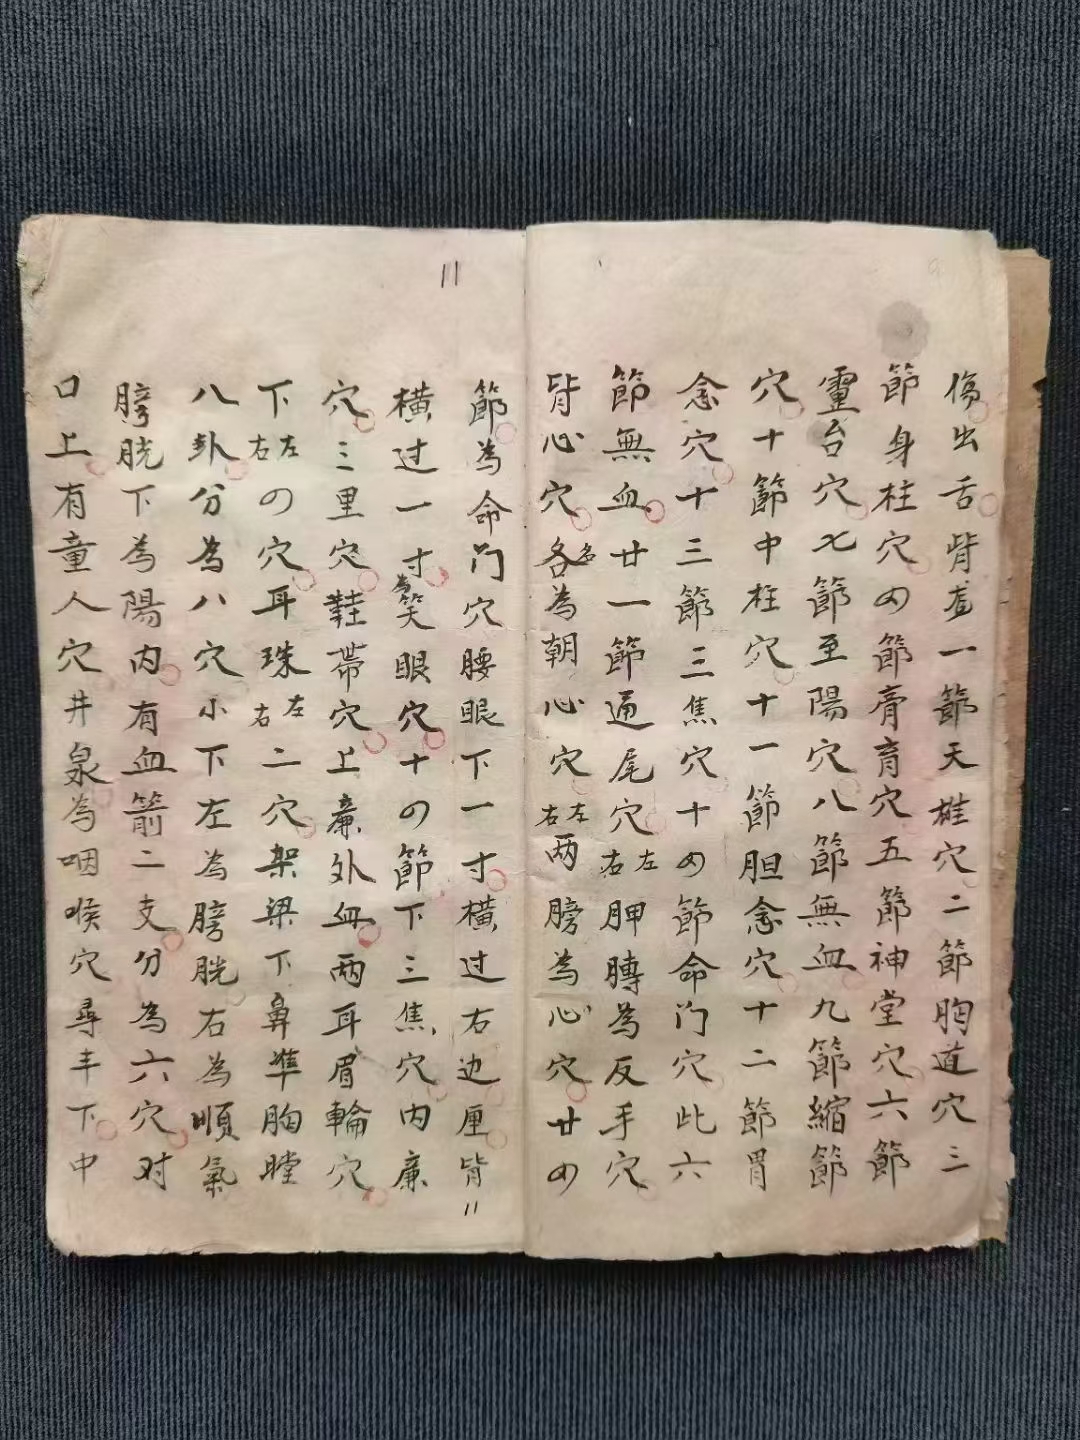 傷出舌背差一節天柱穴二節胸道穴三
節身柱穴四節膏育穴五節神堂穴六節
靈台穴七節至陽穴八節無血九節縮節
穴十節中柱穴十一節胆念穴十二節胃
念穴十三節三焦穴十四節命门穴此六
節無血廿一節通尾穴左右胛膊為反手穴
背心穴各名為朝心穴左右两膀為心穴廿四
節為命门穴腰眼下一寸横过右边厘背
11
横过一寸為笑眼穴十四節下三焦穴内廉
穴三里穴鞋帶穴上廉外血两耳眉輪穴
下左右四穴耳珠左右二穴架梁下鼻準胸膛
八卦分為八穴小下左為膀胱右為順氣
膀胱下為陽内有血箭二支分為六穴对
口上有童人穴井泉為咽喉穴尋丰下中
11